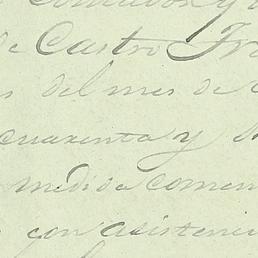 de Castro Fra
s del mes de
cuarenta y
medida comen
con asistenci